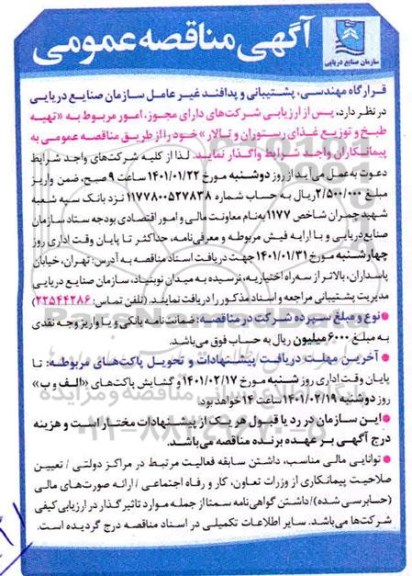 آگهی مناقصه عمومی
سازمان صنایع دریایی
قرارگاه مهندسی، پشتیبانی و پدافند غیر عامل سازمان صنایع دریایی
در نظر دارد، پس از ارزیابی شرکت‌های دارای مجوز، امور مربوط به «تهیه
طبخ و توزیع غذای رستوران و تالار» خود را از طریق مناقصه عمومی به
پیمانکاران واجد شرایط واگذار نمایند. لذا از کلیه شرکت‌های واجد شرایط
دعوت به عمل می آید از روز دوشنبه مورخ ۱۴۰۱/۰۱/۲۲ ساعت ۹ صبح، ضمن واریز
مبلغ ۲/۵۰۰/۰۰۰ ریال به حساب شماره ۱۱۷۷۸۰۰۵۲۷۸۳۸ نزد بانک سپه شعبه
شهید چمران شاخص ۱۱۷۷ به‌نام معاونت مالی و امور اقتصادی بودجه ستاد سازمان
صنایع دریایی و با ارایه فیش مربوطه و معرفی‌نامه، حداکثر تا پایان وقت اداری روز
چهارشنبه مورخ ۱۴۰۱/۰۱/۳۱ جهت دریافت اسناد مناقصه به آدرس: تهران، خیابان
پاسداران، بالاتر از سه راه اختیاریه، نرسیده به میدان نوبنیاد، سازمان صنایع دریایی
مدیریت پشتیبانی مراجعه و اسناد مذکور را دریافت نمایند. (تلفن تماس: ۲۲۵۴۴۲۸۶)
● نوع و مبلغ سپرده شرکت در مناقصه: ضمانت‌نامه بانکی و یا واریز وجه نقدی
به مبلغ ۶۰۰۰ میلیون ریال به حساب فوق می‌باشد.
● آخرین مهلت دریافت پیشنهادات و تحویل پاکت‌های مربوطه: تا
پایان وقت اداری روز شنبه مورخ ۱۴۰۱/۰۲/۱۷ و گشایش پاکت‌های «الف و ب»
روز دوشنبه ۱۴۰۱/۰۲/۱۹ ساعت ۱۴ خواهد بود.
● این سازمان در رد یا قبول هر یک از پیشنهادات مختار است و هزینه
درج آگهی بر عهده برنده مناقصه می‌باشد.
● توانایی مالی مناسب، داشتن سابقه فعالیت مرتبط در مراکز دولتی / تعیین
صلاحیت پیمانکاری از وزرات تعاون، کار و رفاه اجتماعی / ارائه صورت‌های مالی
(حسابرسی شده) / داشتن گواهی‌نامه سمتا از جمله موارد تاثیر گذار در ارزیابی کیفی
شرکت‌ها می‌باشد. سایر اطلاعات تکمیلی در اسناد مناقصه درج گردیده است.